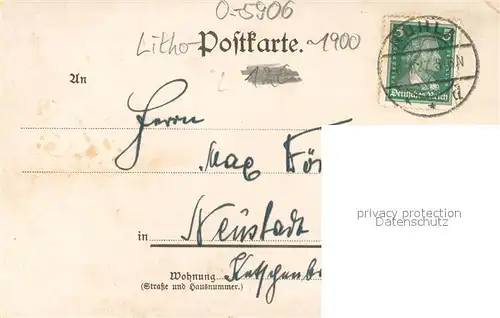 O-5906
Litho Postkarte. ~1900
5
Deutsches Reich
An
Herrn
Max
privacy protection
watermark
in Neustadt
Wohnung
(Straße und Hausnummer.)